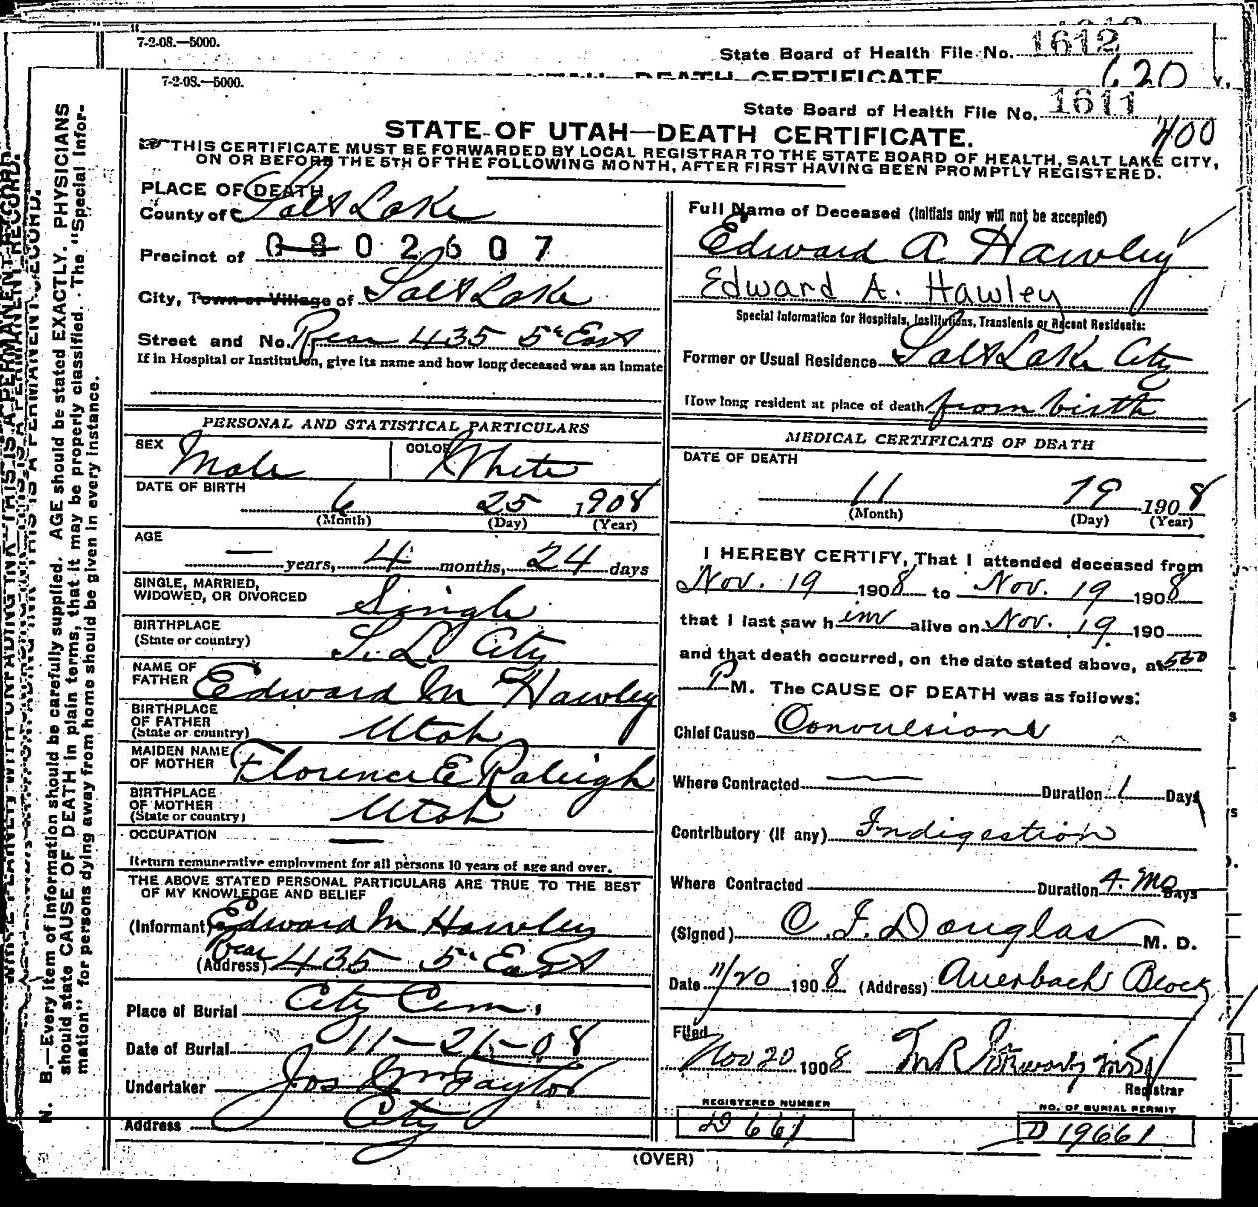 7-2-08.—5000.
State Board of Health File No. 1612
620
UTAH—DEATH CERTIFICATE
7-2-08.—5000.
State Board of Health File No. 1611
400
STATE OF UTAH—DEATH CERTIFICATE.
THIS CERTIFICATE MUST BE FORWARDED BY LOCAL REGISTRAR TO THE STATE BOARD OF HEALTH, SALT LAKE CITY,
ON OR BEFORE THE 5TH OF THE FOLLOWING MONTH, AFTER FIRST HAVING BEEN PROMPTLY REGISTERED.
PLACE OF DEATH
County of Salt Lake
Precinct of 0302607
City, Town or Village of Salt Lake
Street and No. Rear 435 5th East
If in Hospital or Institution, give its name and how long deceased was an inmate
PERSONAL AND STATISTICAL PARTICULARS
SEX Male
COLOR White
DATE OF BIRTH
6 25 1908
(Month) (Day) (Year)
AGE
— years, 4 months, 24 days
SINGLE, MARRIED,
WIDOWED, OR DIVORCED Single
BIRTHPLACE
(State or country) S. L. City
NAME OF
FATHER Edward M Hawley
BIRTHPLACE
OF FATHER
(State or country) Utah
MAIDEN NAME
OF MOTHER Florence E Raleigh
BIRTHPLACE
OF MOTHER
(State or country) Utah
OCCUPATION —
Return remunerative employment for all persons 10 years of age and over.
THE ABOVE STATED PERSONAL PARTICULARS ARE TRUE TO THE BEST
OF MY KNOWLEDGE AND BELIEF
(Informant) Edward M Hawley
(Address) Rear 435 5th East
Place of Burial City Cem.
Date of Burial 11-21-08
Undertaker Jos Wm Taylor
Address City
Full Name of Deceased (Initials only will not be accepted)
Edward A Hawley
Edward A. Hawley
Special Information for Hospitals, Institutions, Transients or Recent Residents:
Former or Usual Residence Salt Lake City
How long resident at place of death from birth
MEDICAL CERTIFICATE OF DEATH
DATE OF DEATH
11 19 1908
(Month) (Day) (Year)
I HEREBY CERTIFY, That I attended deceased from
Nov. 19 1908 to Nov. 19 1908
that I last saw him alive on Nov. 19 190
and that death occurred, on the date stated above, at 500
P M. The CAUSE OF DEATH was as follows:
Chief Cause Convulsions
Where Contracted — Duration 1 Days
Contributory (If any) Indigestion
Where Contracted Duration 4 Mo Days
(Signed) C. F. Douglas M. D.
Date 11/20 1908 (Address) Auerbach Block
Filed
Nov 20 1908
Registrar
REGISTERED NUMBER
D 661
NO. OF BURIAL PERMIT
D 19661
(OVER)
N. B.—Every item of information should be carefully supplied. AGE should be stated EXACTLY. PHYSICIANS
should state CAUSE OF DEATH in plain terms, that it may be properly classified. The "Special Infor-
mation" for persons dying away from home should be given in every instance.